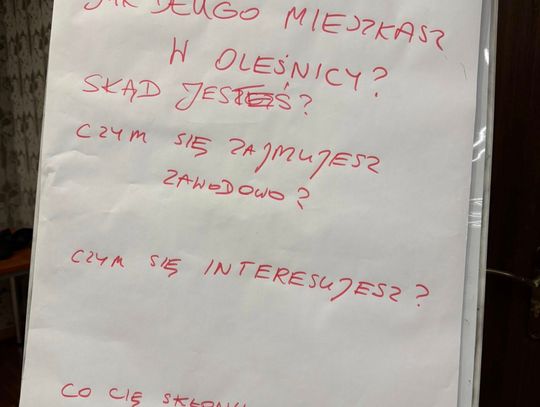 JAK DŁUGO MIESZKASZ
W OLEŚNICY?
SKĄD JESTEŚ?
CZYM SIĘ ZAJMUJESZ
ZAWODOWO?
CZYM SIĘ INTERESUJESZ?
CO CIĘ